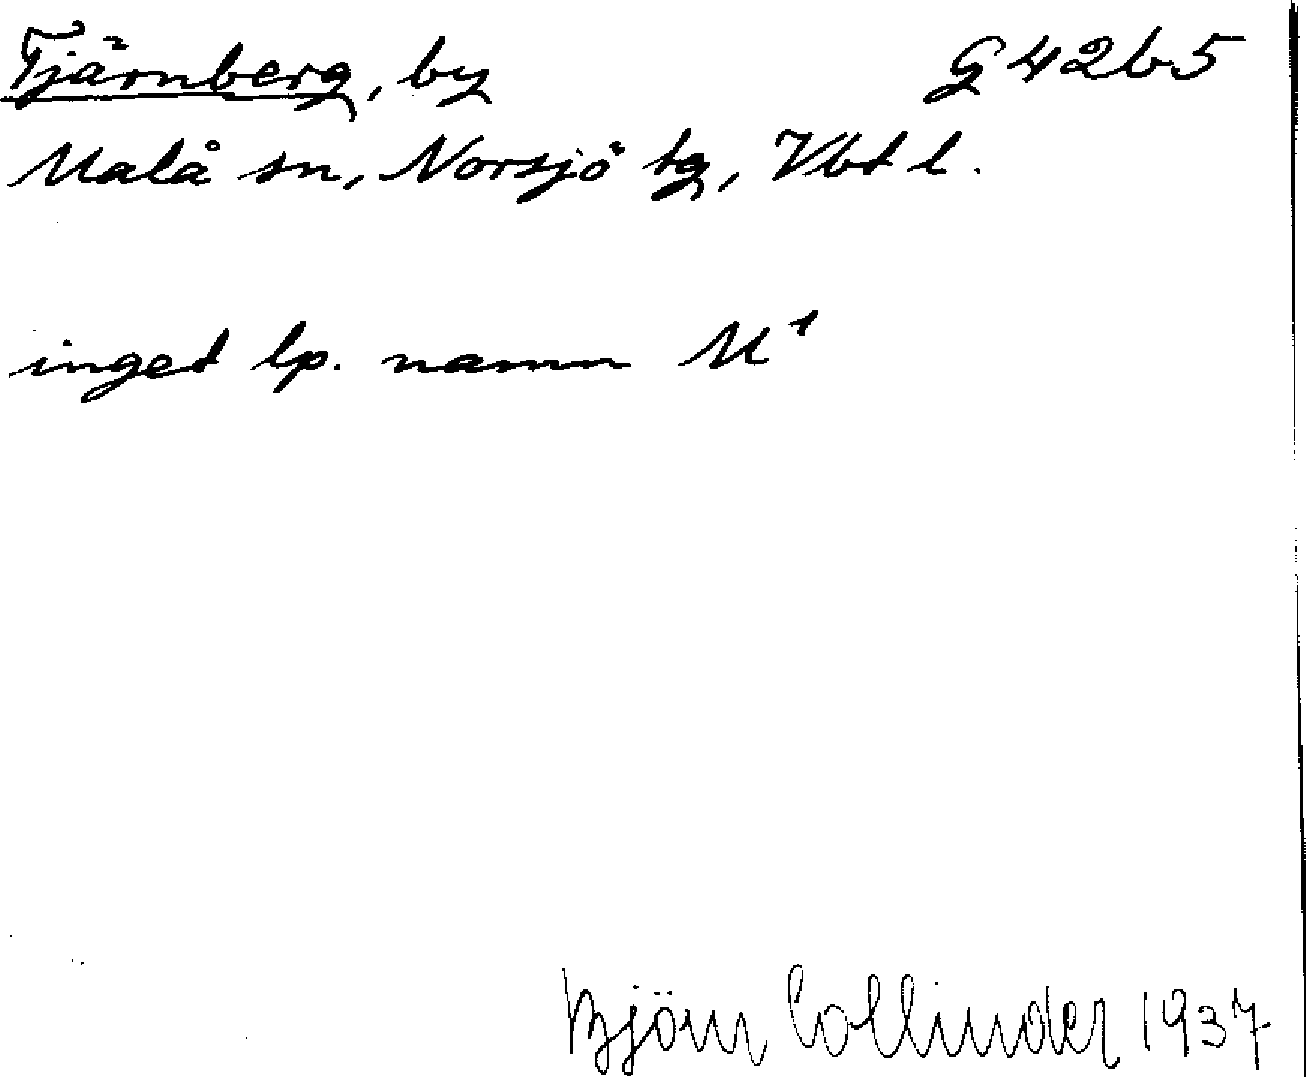 Tjärnberg, by G 42b5
Malå sn, Norsjö tg, Vbt l.
inget lp. namn M¹
Björn Collinder 1937